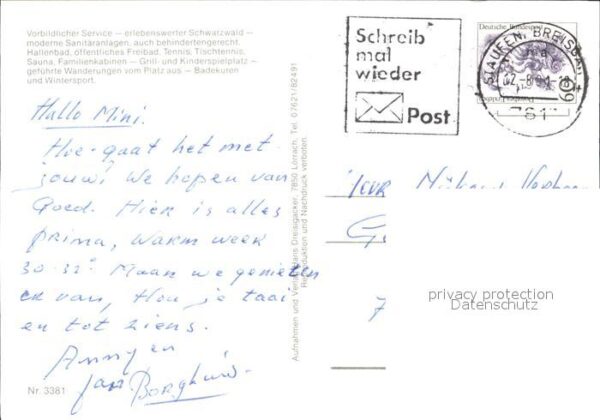 Vorbildlicher Service — erlebenswerter Schwarzwald —
moderne Sanitäranlagen, auch behindertengerecht.
Hallenbad, öffentliches Freibad, Tennis, Tischtennis,
Sauna, Familienkabinen — Grill- und Kinderspielplatz —
geführte Wanderungen vom Platz aus — Badekuren
und Wintersport.
Hallo Mini.
Hoe gaat het met
jouw! We hopen van
Goed. Hier is alles
prima, Warm week
30-32° Maar we genieten
er van, Hou je taai
en tot ziens.
Anny en
Jan
Nr. 3381
Aufnahmen und Verlag: Hans Dreisigacker, 7850 Lörrach, Tel. 07621/82491
Reproduktion und Nachdruck verboten.
Schreib
mal
wieder
Post
Deutsche Bundespost
STAUFEN, BREISGAU
7
privacy protection
Datenschutz